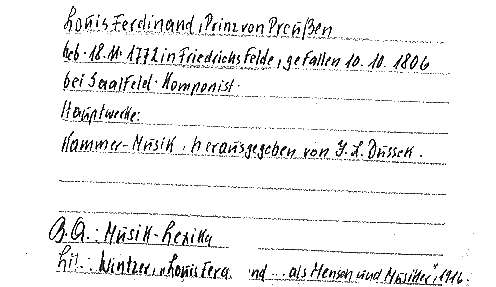 Louis Ferdinand, Prinz von Preußen
Geb. 18.11.1772 in Friedrichsfelde, gefallen 10.10.1806
bei Saalfeld. Komponist.
Hauptwerke:
Kammer-Musik, herausgegeben von J. L. Dussek.
B.Q.: Musik-Lexika
Lit.: Wintzer, "Louis Ferd nd .. als Mensch und Musiker", 1916.